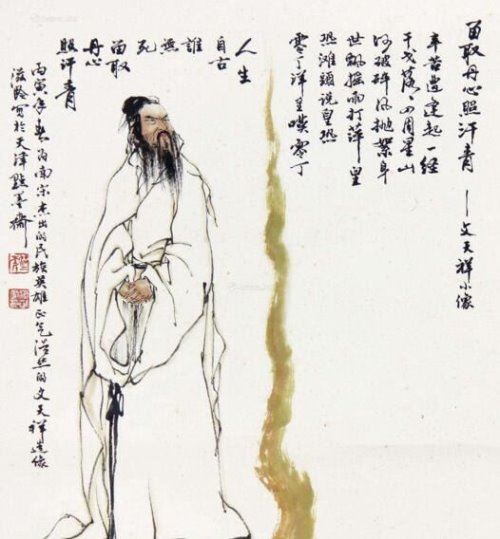 留取丹心照汗青 — 文天祥小像
辛苦遭逢起一经
干戈落落四周星山
河破碎风抛絮身
世飘摇雨打萍皇
恐滩头说皇恐
零丁洋里嘆零丁
人生
自古
誰
無
死
留取
丹心
照汗青
丙寅年春为南宋杰出的民族英雄正气浩然的文天祥造像
滋龄写於天津點墨齋